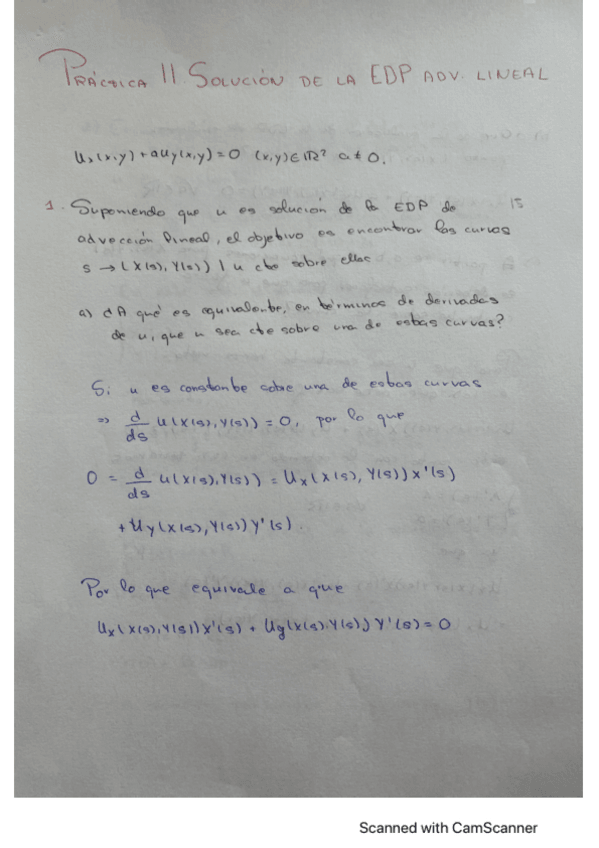 PRÁCTICA 11. SOLUCIÓN DE LA EDP ADV. LINEAL
Ux(x,y) + aUy(x,y) = 0 (x,y)∈ℝ² a≠0.
1. Suponiendo que u es solución de la EDP de
advección lineal, el objetivo es encontrar las curvas
s → (X(s), Y(s)) | u cte sobre ellas
a) ¿A qué es equivalente, en términos de derivadas
de u, que u sea cte sobre una de estas curvas?
Si u es constante sobre una de estas curvas
=> d/ds u(X(s), Y(s)) = 0, por lo que
0 = d/ds u(X(s), Y(s)) = Ux(X(s), Y(s)) x'(s)
+ Uy(X(s), Y(s)) y'(s).
Por lo que equivale a que
Ux(X(s), Y(s)) x'(s) + Uy(X(s), Y(s)) Y'(s) = 0
Scanned with CamScanner